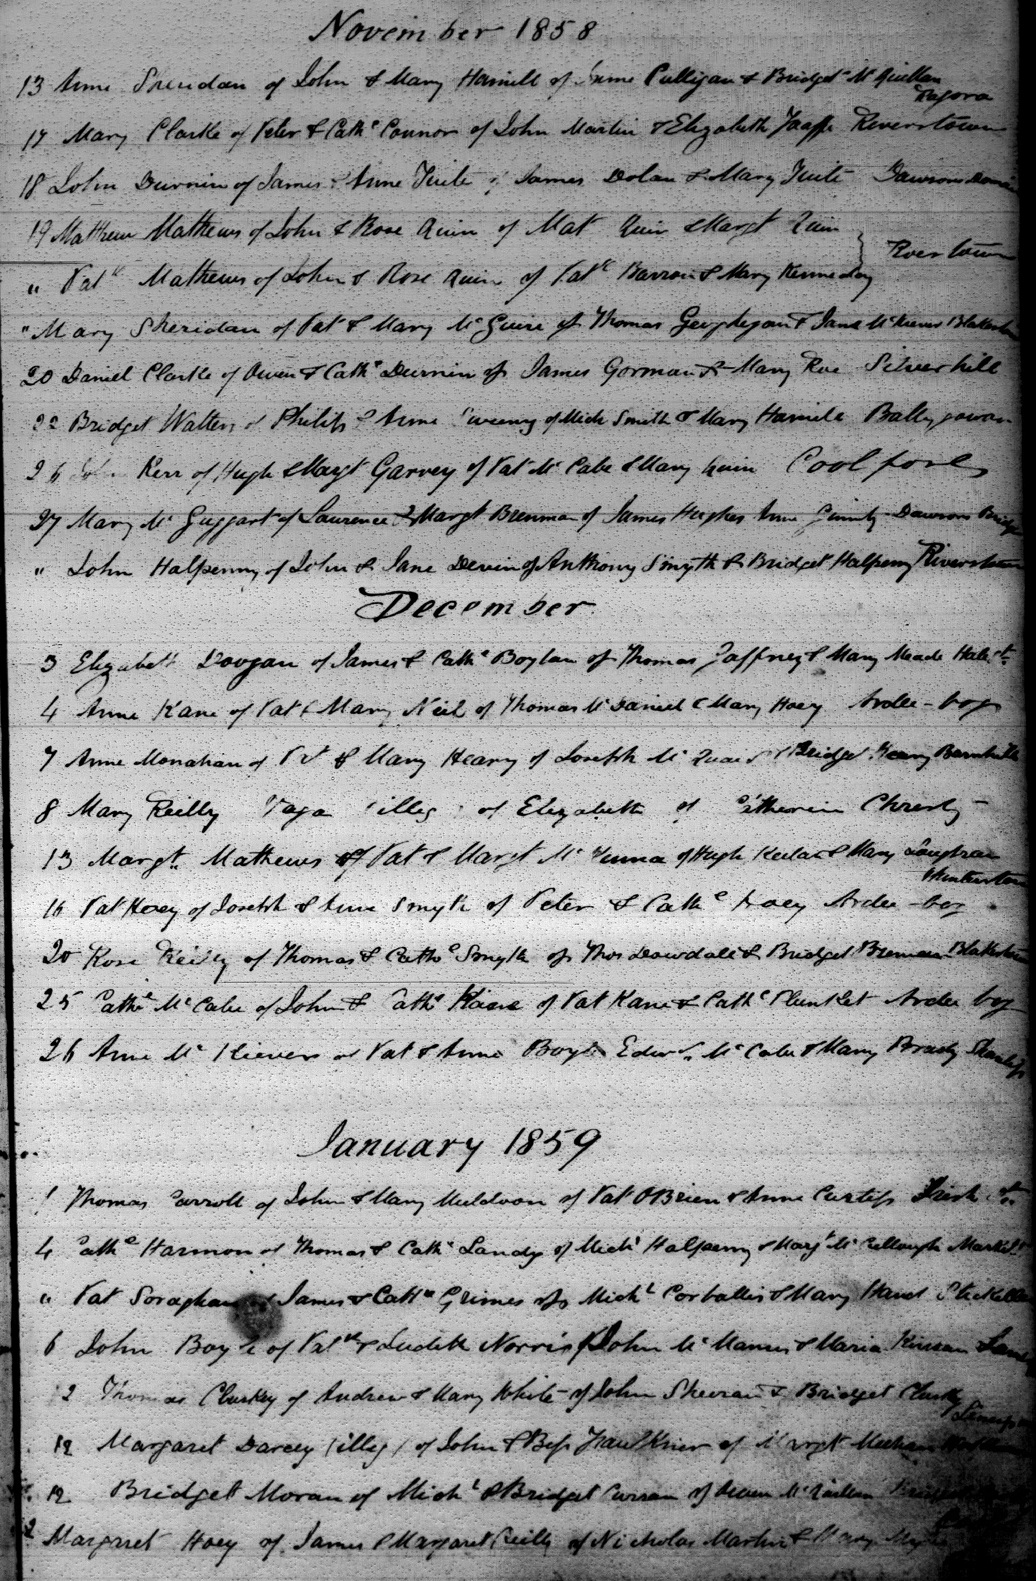 November 1858
13 Anne Sheridan of John & Mary Hamill of Culligan & Bridget McQuillan
Ragora
17 Mary Clarke of Peter & Cathe Connor of John Martin & Elizabeth Taaffe Riverstown
18 John Durnin of James & Anne Tuite of James Dolan & Mary Tuite Dawsons Demain
19 Matthew Mathews of John & Rose Quin of Mat Quin & Margt Quin
Riverstown
" Patk Mathews of John & Rose Quin of Patk Barron & Mary Kennedy
" Mary Sheridan of Pat & Mary McGuire of Thomas Geoghegan & Jane McKeever
20 Daniel Clarke of Owen & Cathe Durnin of James Gorman & Mary Roe Silverhill
22 Bridget Walters of Philip & Anne Sweeny of Mich Smith & Mary Hamill Ballygowan
26 John Kerr of Hugh & Margt Garvey of Pat McCabe & Mary Quin
27 Mary McGuggart of Laurence & Margt Brennan of James Hughes Anne Ginnity Dawsons Bridge
" John Halpenny of John & Jane Devin of Anthony Smyth & Bridget Halpenny Riverstown
December
3 Elizabeth Doogan of James & Cathe Boylan of Thomas Gaffney & Mary Meade Hale St
4 Anne Kane of Pat & Mary Neil of Thomas McDaniel & Mary Hoey Ardee-bog
7 Anne Monahan of Pat & Mary Heary of Joseph McQuaid & Bridget Heary
8 Mary Reilly Vaga illeg of Elizabeth of Catherine Christy
13 Margt Mathews of Pat & Margt McKenna of Hugh Keelan & Mary Loughran
Hunterstown
16 Pat Hoey of Joseph & Anne Smyth of Peter & Cathe Hoey Ardee-bog
20 Rose Reilly of Thomas & Cathe Smyth of Thos Dowdall & Bridget Brennan
25 Cathe McCabe of John & Cathe Kane of Pat Kane & Cathe Plunket Ardee bog
26 Anne McKiever of Pat & Anne Boyle Edwd McCabe & Mary Brady
January 1859
1 Thomas Carroll of John & Mary Muldoon of Pat OBrien & Anne Curtis Irish St
4 Cathe Harmon of Thomas & Cathe Landy of Michl Halpenny & Margt McCullough Market St
" Pat Soraghan of James & Cathe Grimes of Michl Corballis & Mary Hand
6 John Boyle of Patk & Judith Norris of John McManus & Maria Kirwan
2 Thomas Cluskey of Andrew & Mary White of John Sheeran & Bridget Clusky
12 Margaret Darcey (illeg) of John & Bess Faulkner of Margt Meehan
12 Bridget Moran of Michl & Bridget Curran of Owen McQuillan
Margaret Hoey of James & Margaret Reilly of Nicholas Martin & Mary